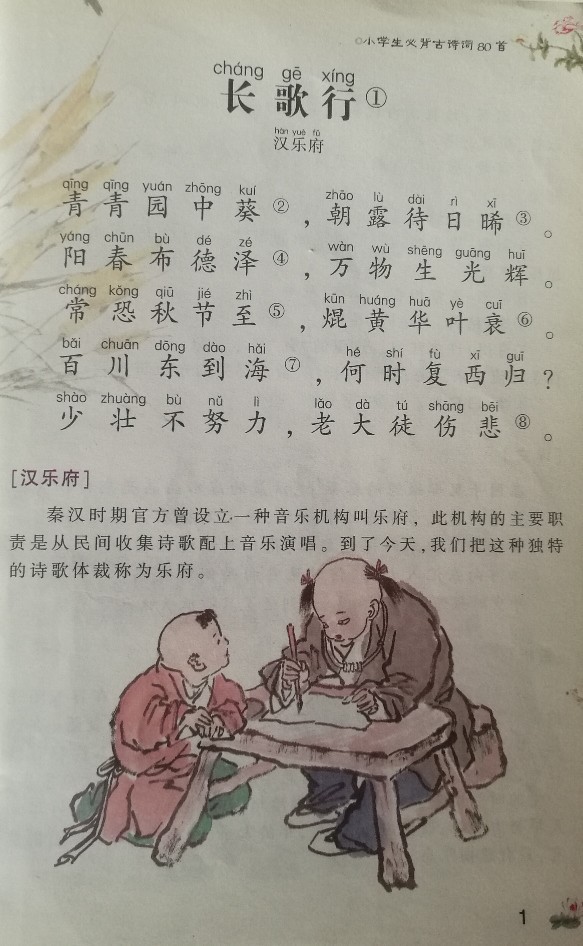 ◎小学生必背古诗词80首
cháng gē xíng
长歌行①
hàn yuè fǔ
汉乐府
qīng qīng yuán zhōng kuí zhāo lù dài rì xī
青青园中葵②，朝露待日晞③。
yáng chūn bù dé zé wàn wù shēng guāng huī
阳春布德泽④，万物生光辉。
cháng kǒng qiū jié zhì kūn huáng huā yè cuī
常恐秋节至⑤，焜黄华叶衰⑥。
bǎi chuān dōng dào hǎi hé shí fù xī guī
百川东到海⑦，何时复西归？
shào zhuàng bù nǔ lì lǎo dà tú shāng bēi
少壮不努力，老大徒伤悲⑧。
[汉乐府]
秦汉时期官方曾设立一种音乐机构叫乐府，此机构的主要职
责是从民间收集诗歌配上音乐演唱。到了今天,我们把这种独特
的诗歌体裁称为乐府。
1